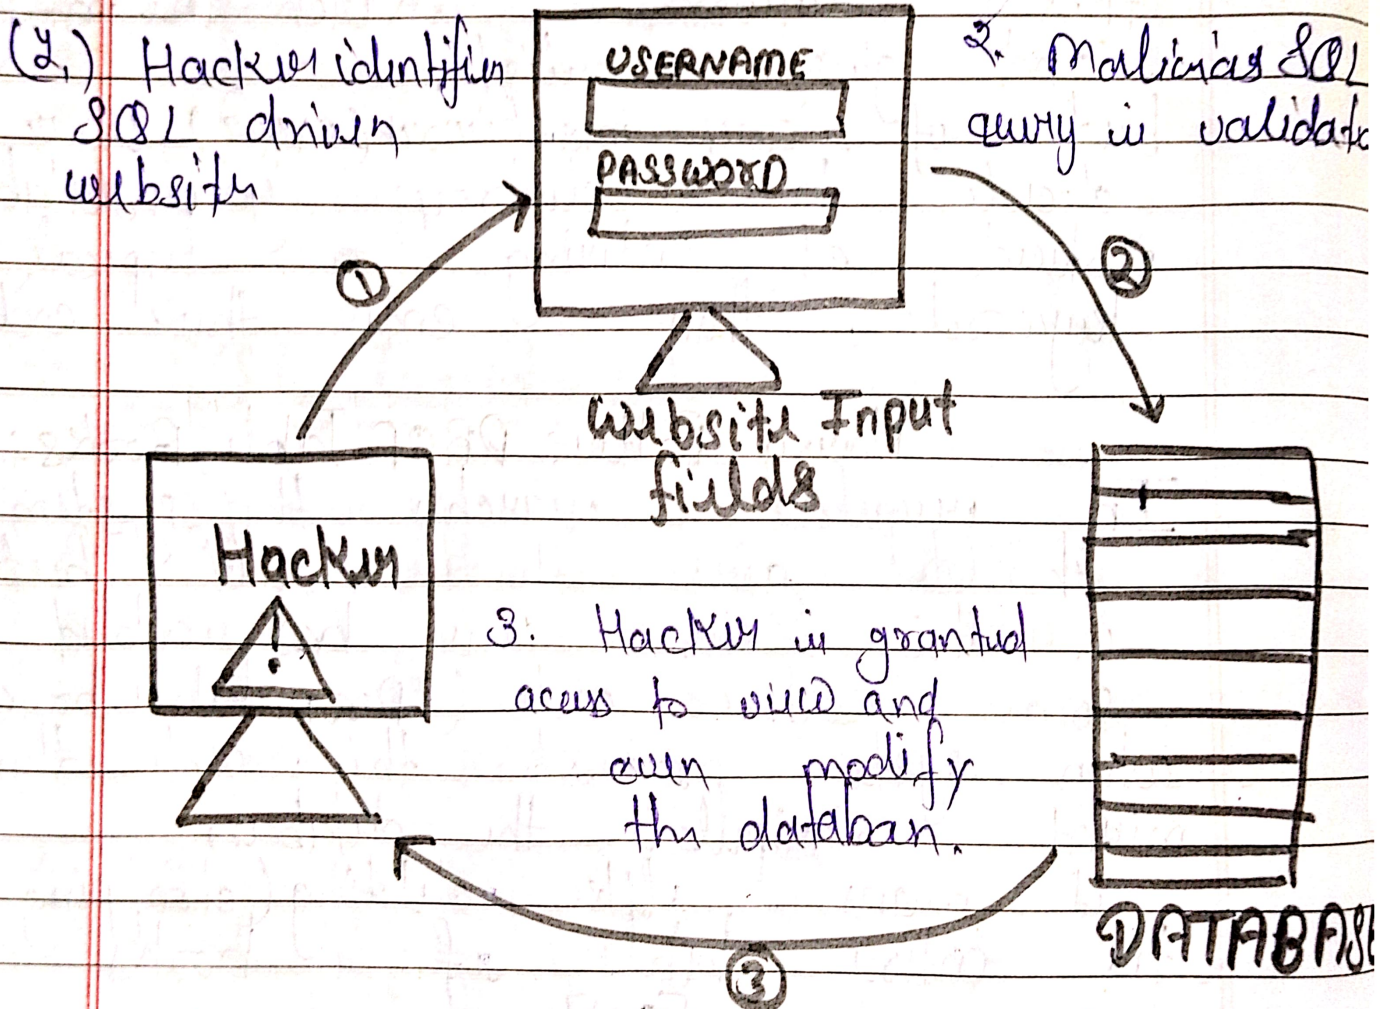 (1.) Hacker identifies
SQL driven
website
USERNAME
PASSWORD
2. Malicias SQL
query is validate
①
②
Website Input
fields
Hacker
!
3. Hacker is granted
acess to view and
even modify
the database.
③
DATABASE